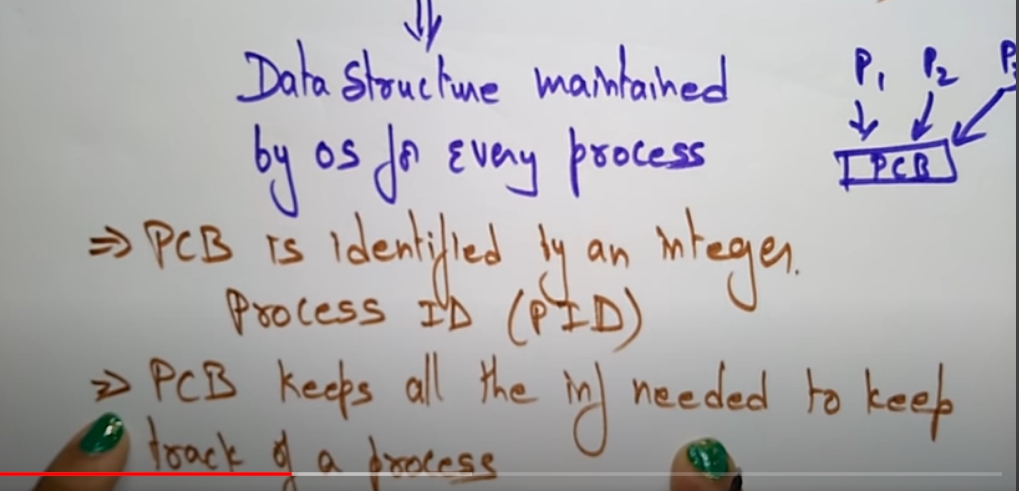 Data Structure maintained
by os for Every process
P1 P2
PCB
⇒ PCB is identified by an integer.
Process ID (PID)
⇒ PCB keeps all the inf needed to keep
track of a process